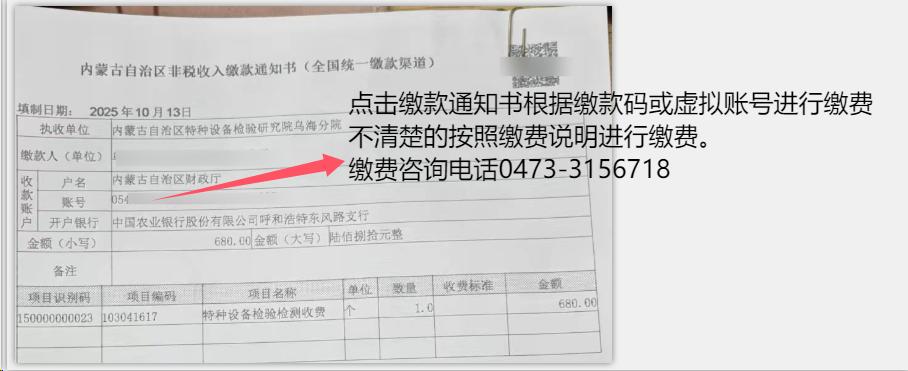 内蒙古自治区非税收入缴款通知书（全国统一缴款渠道）
填制日期： 2025年10月13日
点击缴款通知书根据缴款码或虚拟账号进行缴费
不清楚的按照缴费说明进行缴费。
缴费咨询电话0473-3156718
执收单位 内蒙古自治区特种设备检验研究院乌海分院
缴款人（单位）
收款账户
户名 内蒙古自治区财政厅
账号 054
开户银行 中国农业银行股份有限公司呼和浩特东风路支行
金额（小写） 680.00 金额（大写） 陆佰捌拾元整
备注
项目识别码 项目编码 项目名称 单位 数量 收费标准 金额
150000000023 103041617 特种设备检验检测收费 个 1.0 680.00